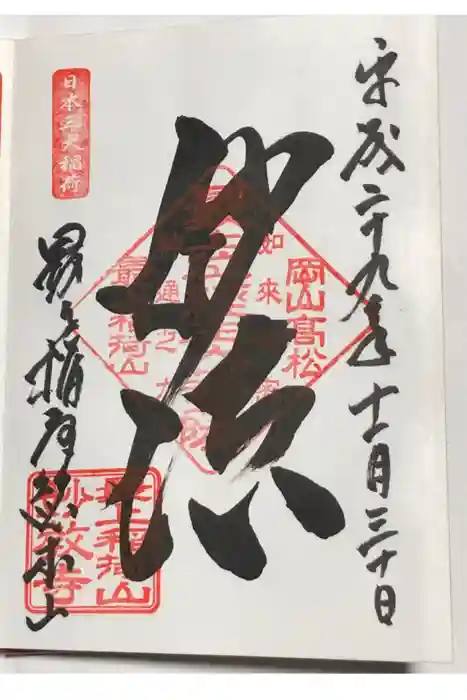 平成二十九年十一月三十日
岡山高松
如来
妙法
最上稲荷山
神通之力
日本三大稲荷
最上稲荷総本山
最上稲荷山
妙教寺